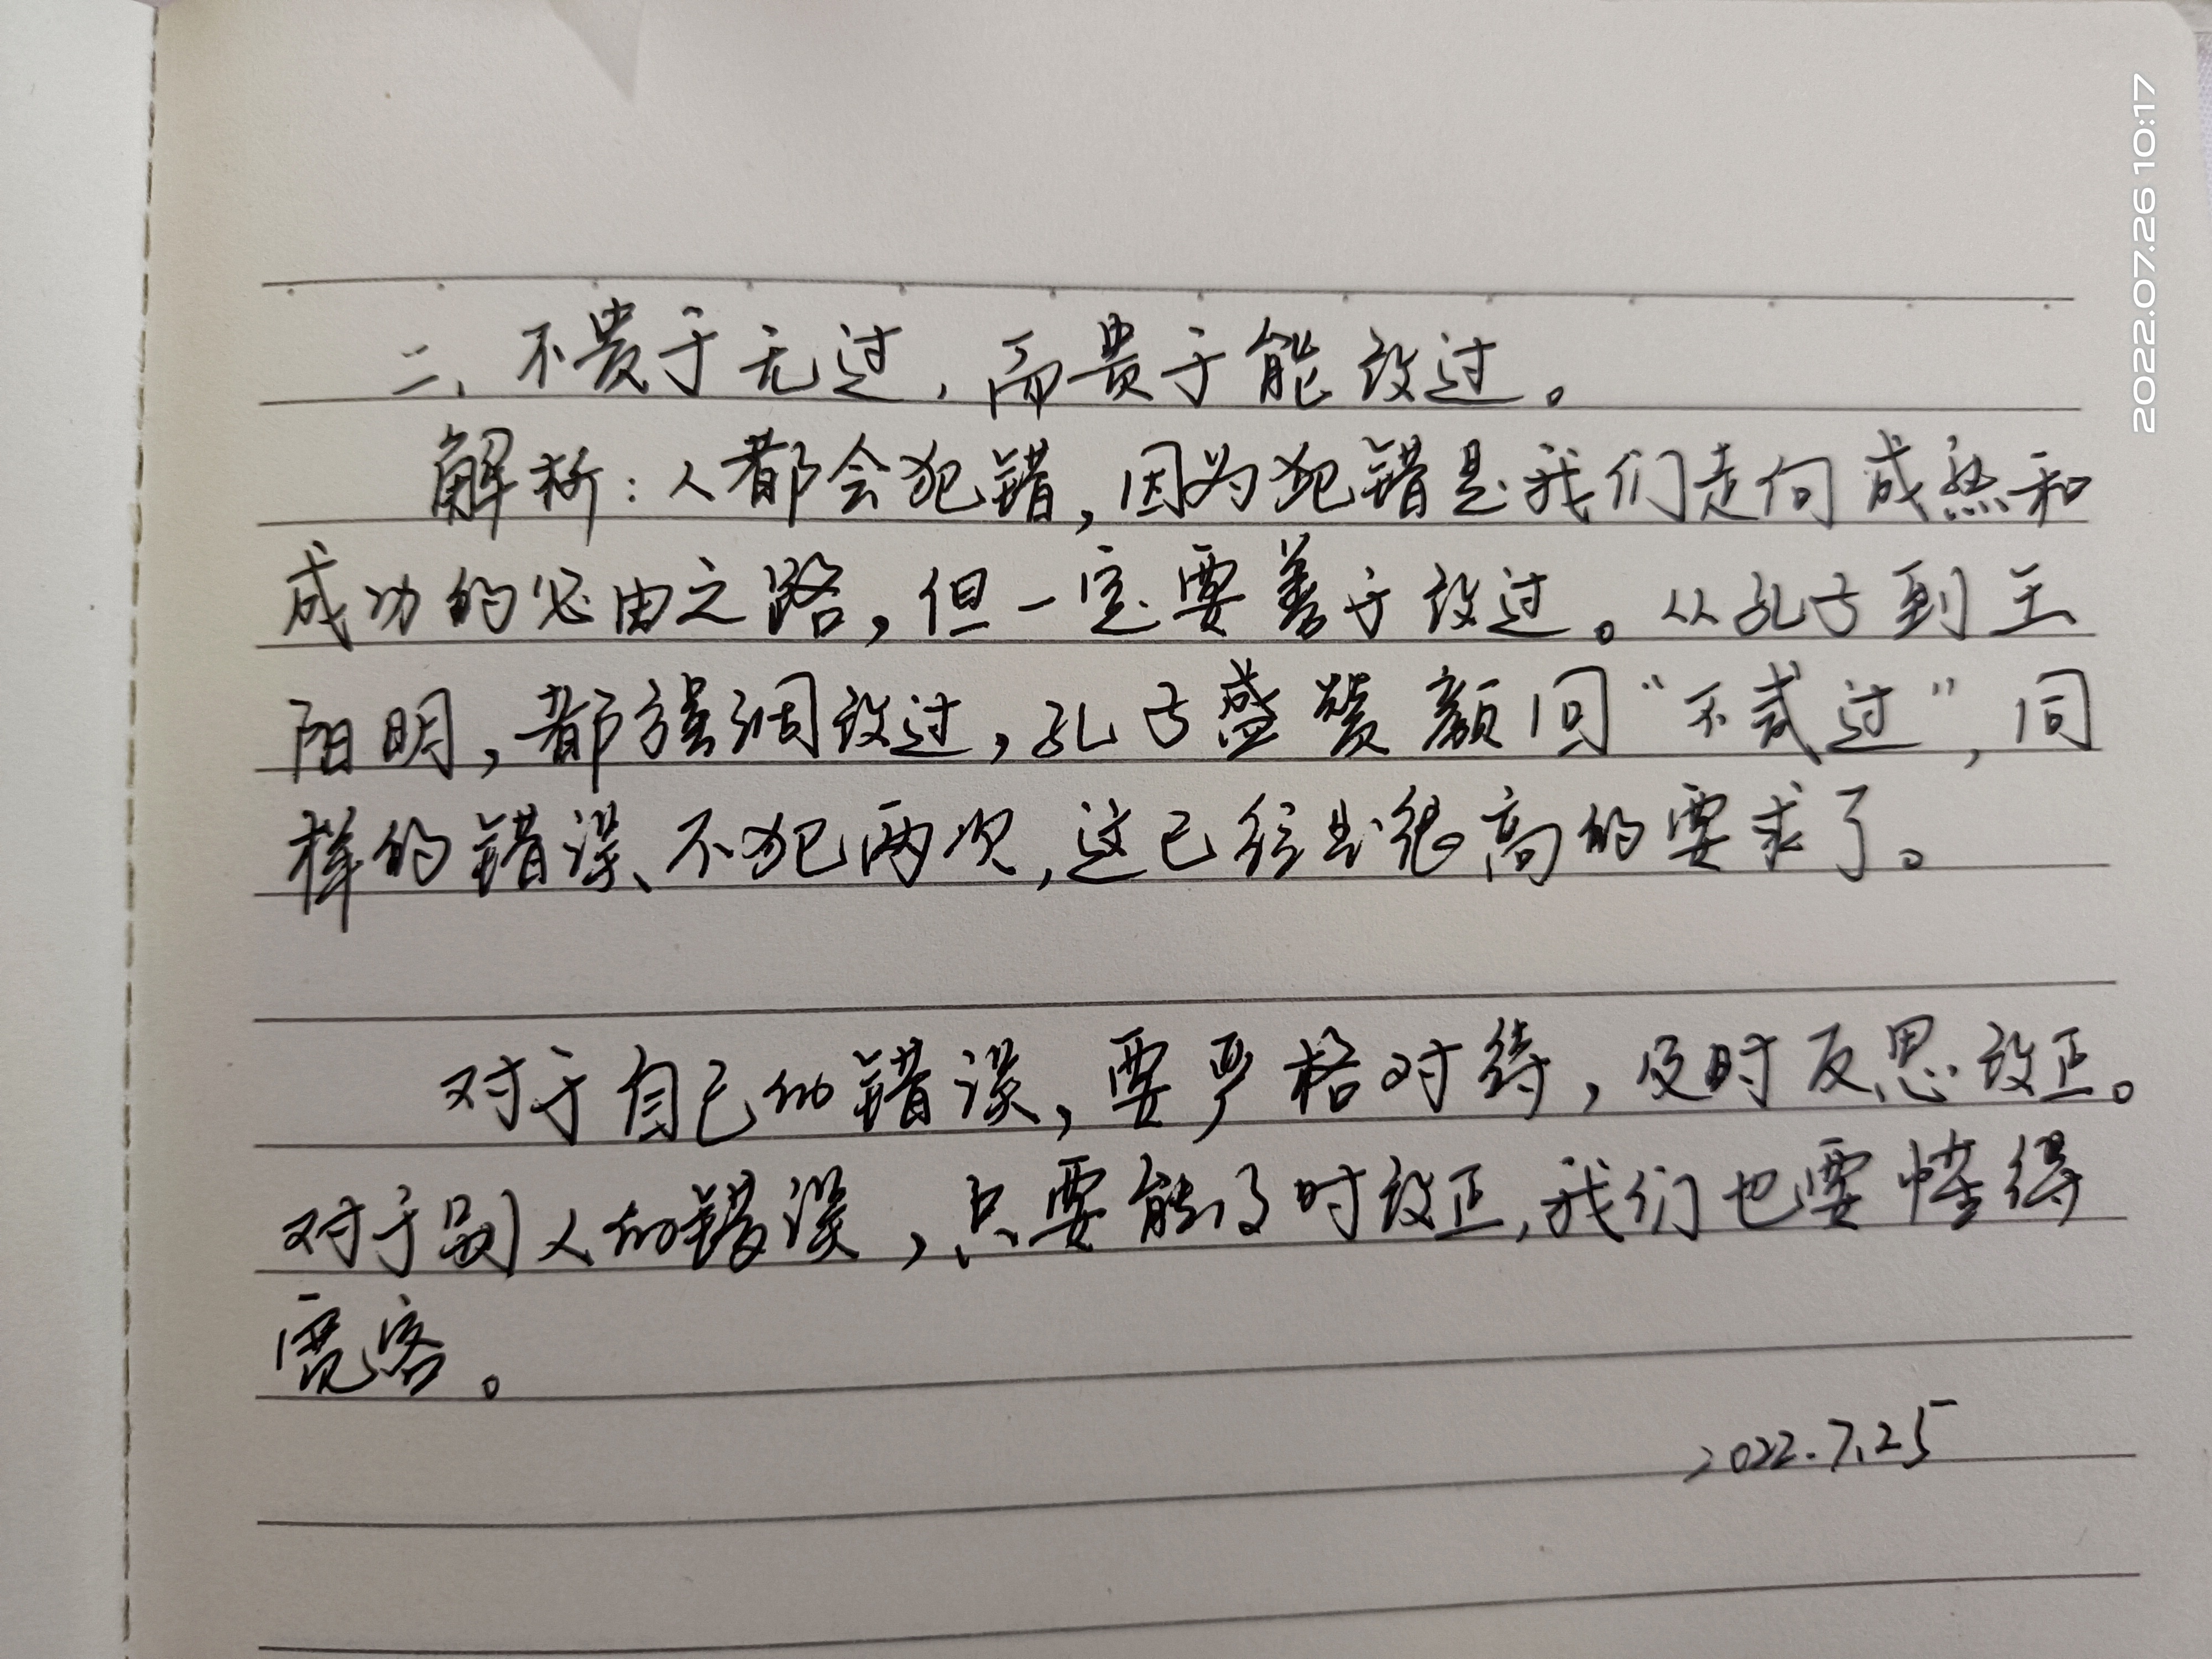 二、不贵于无过，而贵于能改过。
解析：人都会犯错，因为犯错是我们走向成熟和
成功的必由之路，但一定要善于改过。从孔子到王
阳明，都强调改过，孔子盛赞颜回“不贰过”，同
样的错误、不犯两次，这已经是很高的要求了。
对于自己的错误，要严格对待，及时反思改正。
对于别人的错误，只要能及时改正，我们也要懂得
宽容。
2022.7.25
2022.07.26 10:17